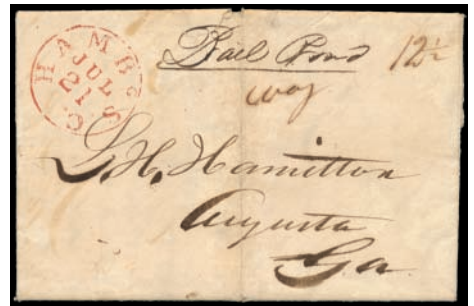 HAMBG S.C.
JUL
21
Rail Road 12½
way
L. H. Hamilton
Augusta
Ga